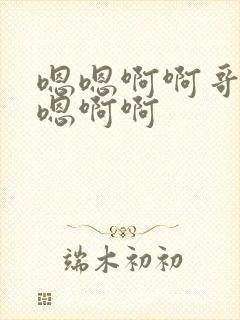 嗯嗯啊啊哥
嗯啊啊
端木初初